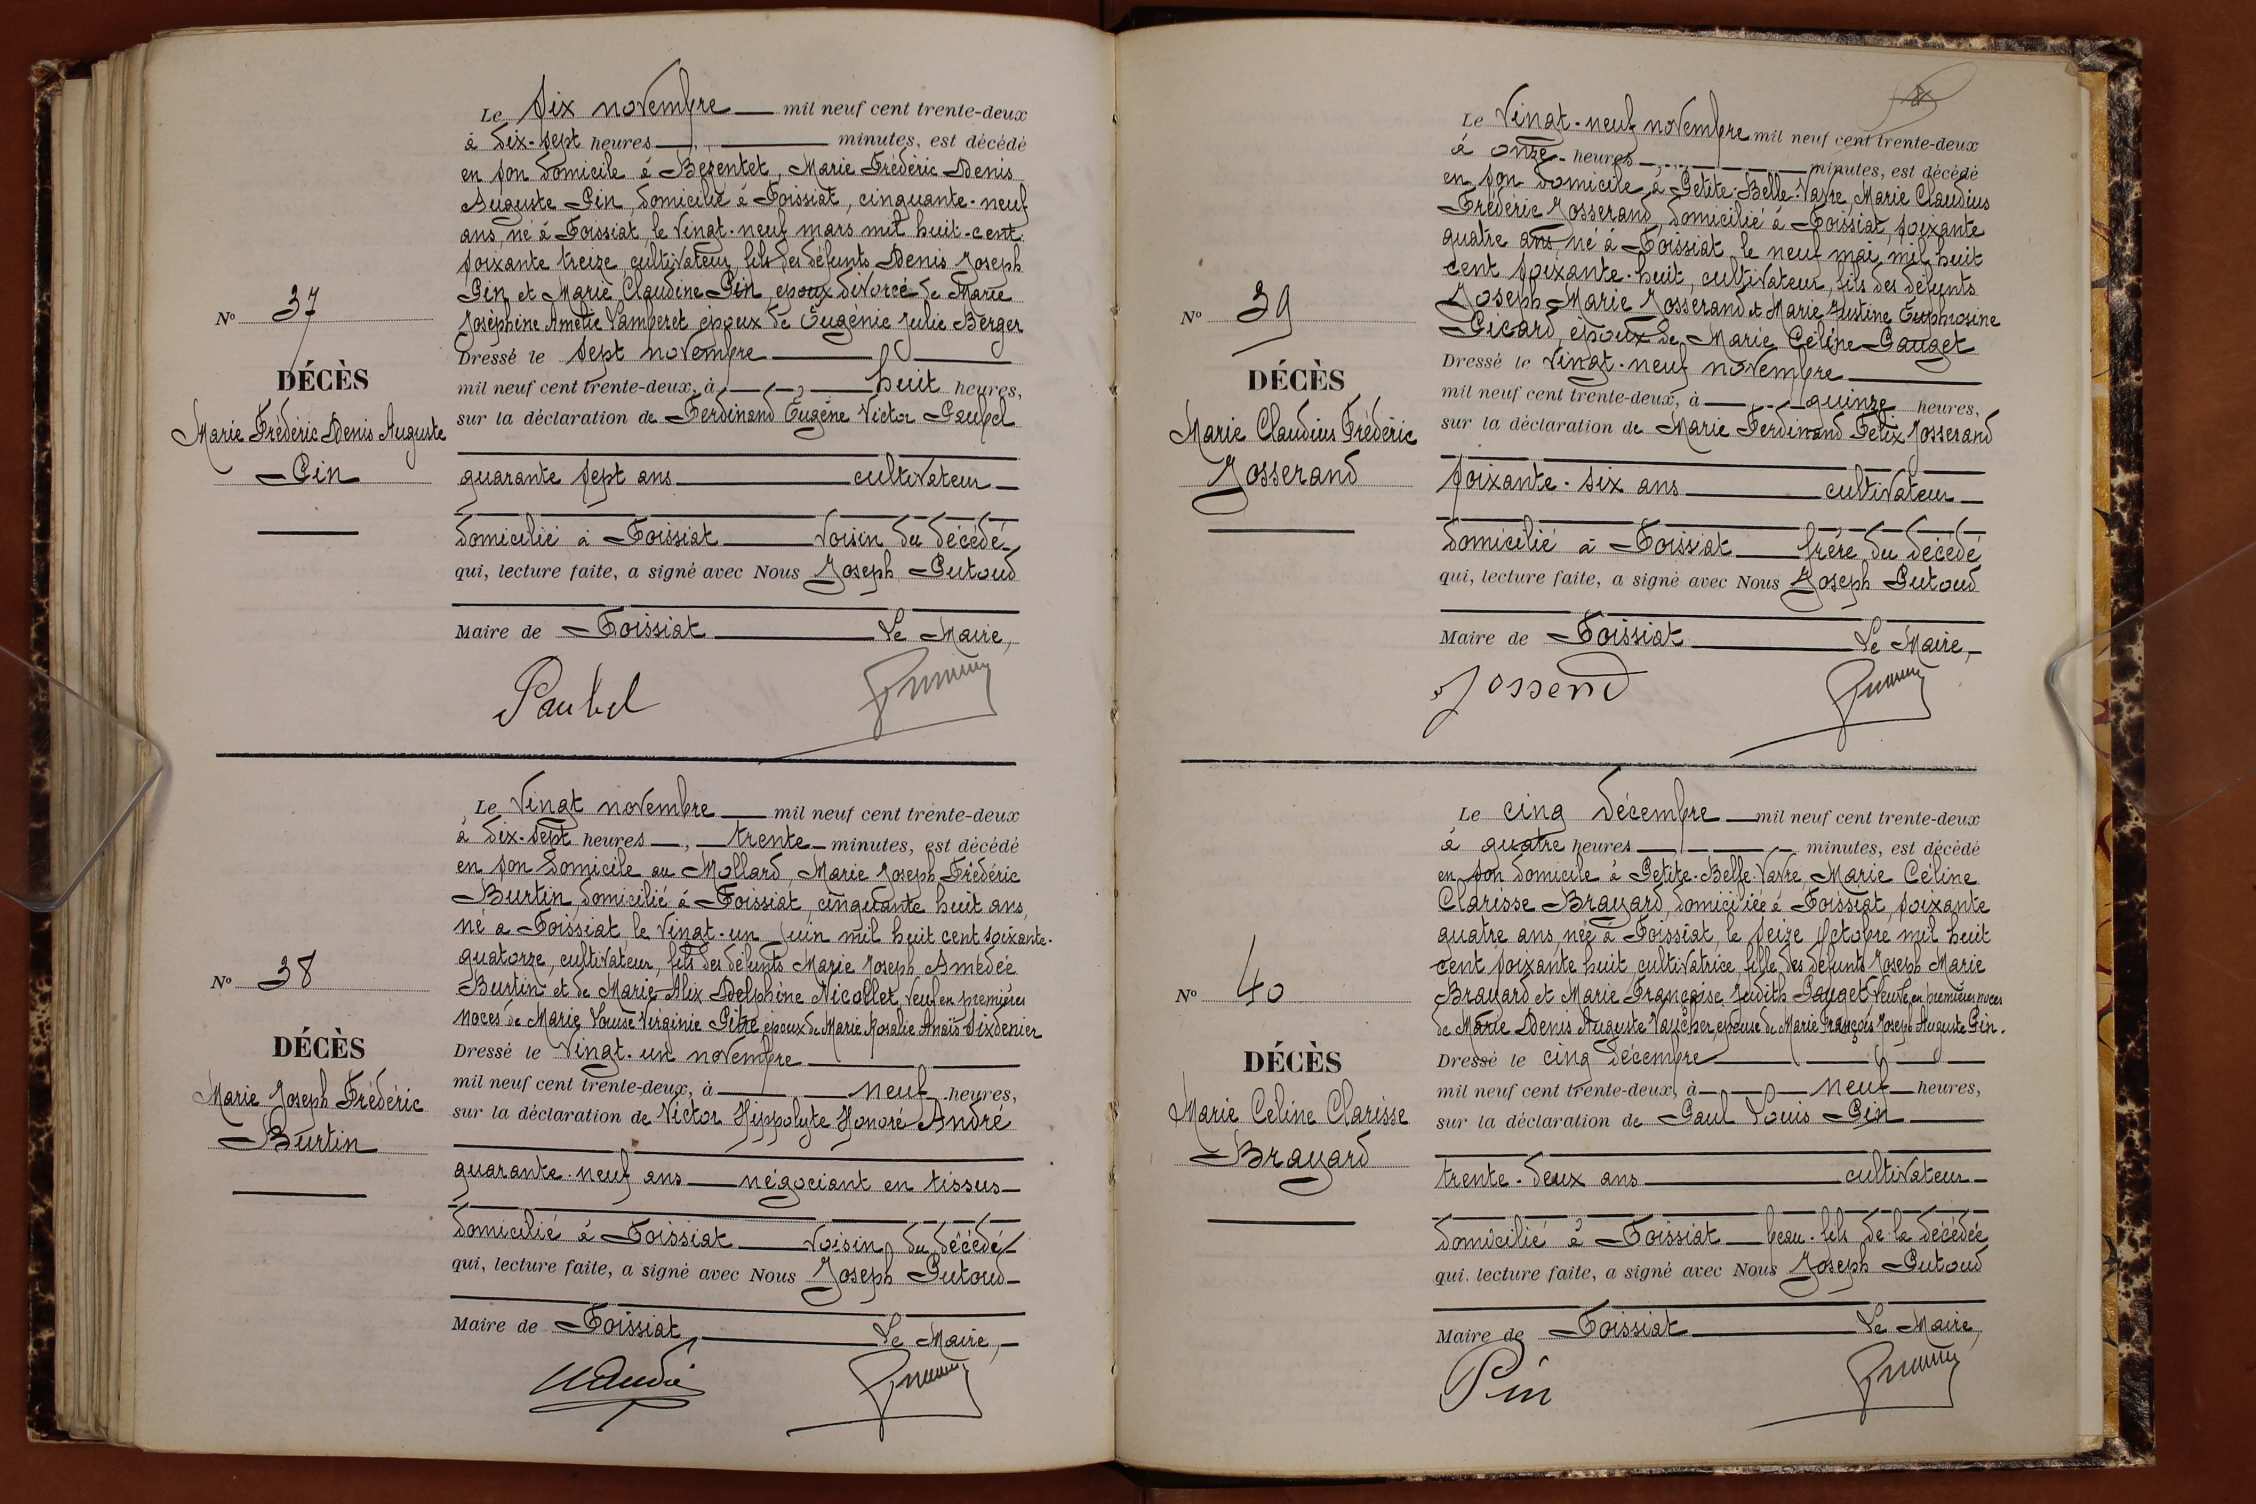 Le six novembre mil neuf cent trente-deux
à dix-sept heures minutes, est décédé
en son domicile à Bezentet, Marie Frédéric Denis
Auguste Pin, domicilié à Foissiat, cinquante-neuf
ans, né à Foissiat, le vingt-neuf mars mil huit-cent
soixante treize, cultivateur, fils des défunts Denis Joseph
Pin et Marie Claudine Pin, époux divorcé de Marie
Josèphine Amélie Vamperet époux de Eugénie Julie Berger
Dressé le sept novembre
mil neuf cent trente-deux, à huit heures,
sur la déclaration de Ferdinand Eugène Victor Paubel
quarante sept ans cultivateur
domicilié à Foissiat voisin du décédé
qui, lecture faite, a signé avec Nous Joseph Putoud
Maire de Foissiat Le Maire,
Paubel
No 37
DÉCÈS
Marie Frédéric Denis Auguste
Pin
Le vingt novembre mil neuf cent trente-deux
à dix-sept heures, trente minutes, est décédé
en son domicile au Mollard, Marie Joseph Frédéric
Burtin, domicilié à Foissiat, cinquante huit ans,
né à Foissiat, le vingt-un juin mil huit cent soixante-
quatorze, cultivateur, fils des défunts Marie Joseph Amédée
Burtin et de Marie Alix Delphine Nicollet, veuf en premières
noces de Marie Louise Virginie Pitre époux de Marie Rosalie Anaïs Sixdenier
Dressé le vingt-un novembre
mil neuf cent trente-deux, à neuf heures,
sur la déclaration de Victor Hippolyte Honoré André
quarante-neuf ans négociant en tissus
domicilié à Foissiat voisin du décédé
qui, lecture faite, a signé avec Nous Joseph Putoud
Maire de Foissiat Le Maire,
No 38
DÉCÈS
Marie Joseph Frédéric
Burtin
Le vingt-neuf novembre mil neuf cent trente-deux
à onze heures minutes, est décédé
en son domicile à Petite-Belle-Vavre, Marie Claudius
Frédéric Josserand, domicilié à Foissiat, soixante
quatre ans, né à Foissiat, le neuf mai mil huit
cent soixante-huit, cultivateur, fils des défunts
Joseph Marie Josserand et Marie Justine Euphrosine
Picard, époux de Marie Céline Pauget
Dressé le vingt-neuf novembre
mil neuf cent trente-deux, à quinze heures,
sur la déclaration de Marie Ferdinand Félix Josserand
soixante-six ans cultivateur
domicilié à Foissiat frère du décédé
qui, lecture faite, a signé avec Nous Joseph Putoud
Maire de Foissiat Le Maire,
Josserand
No 39
DÉCÈS
Marie Claudius Frédéric
Josserand
Le cinq décembre mil neuf cent trente-deux
à quatre heures minutes, est décédé
en son domicile à Petite-Belle-Vavre, Marie Céline
Clarisse Brayard, domiciliée à Foissiat, soixante
quatre ans, née à Foissiat, le seize octobre mil huit
cent soixante huit, cultivatrice, fille des défunts Joseph Marie
Brayard et Marie Françoise Judith Pauget veuve en premières noces
de Marie Denis Auguste Vaucher, épouse de Marie François Joseph Auguste Pin.
Dressé le cinq décembre
mil neuf cent trente-deux, à neuf heures,
sur la déclaration de Paul Louis Pin
trente-deux ans cultivateur
domicilié à Foissiat beau-fils de la décédée
qui, lecture faite, a signé avec Nous Joseph Putoud
Maire de Foissiat Le Maire,
Pin
No 40
DÉCÈS
Marie Céline Clarisse
Brayard